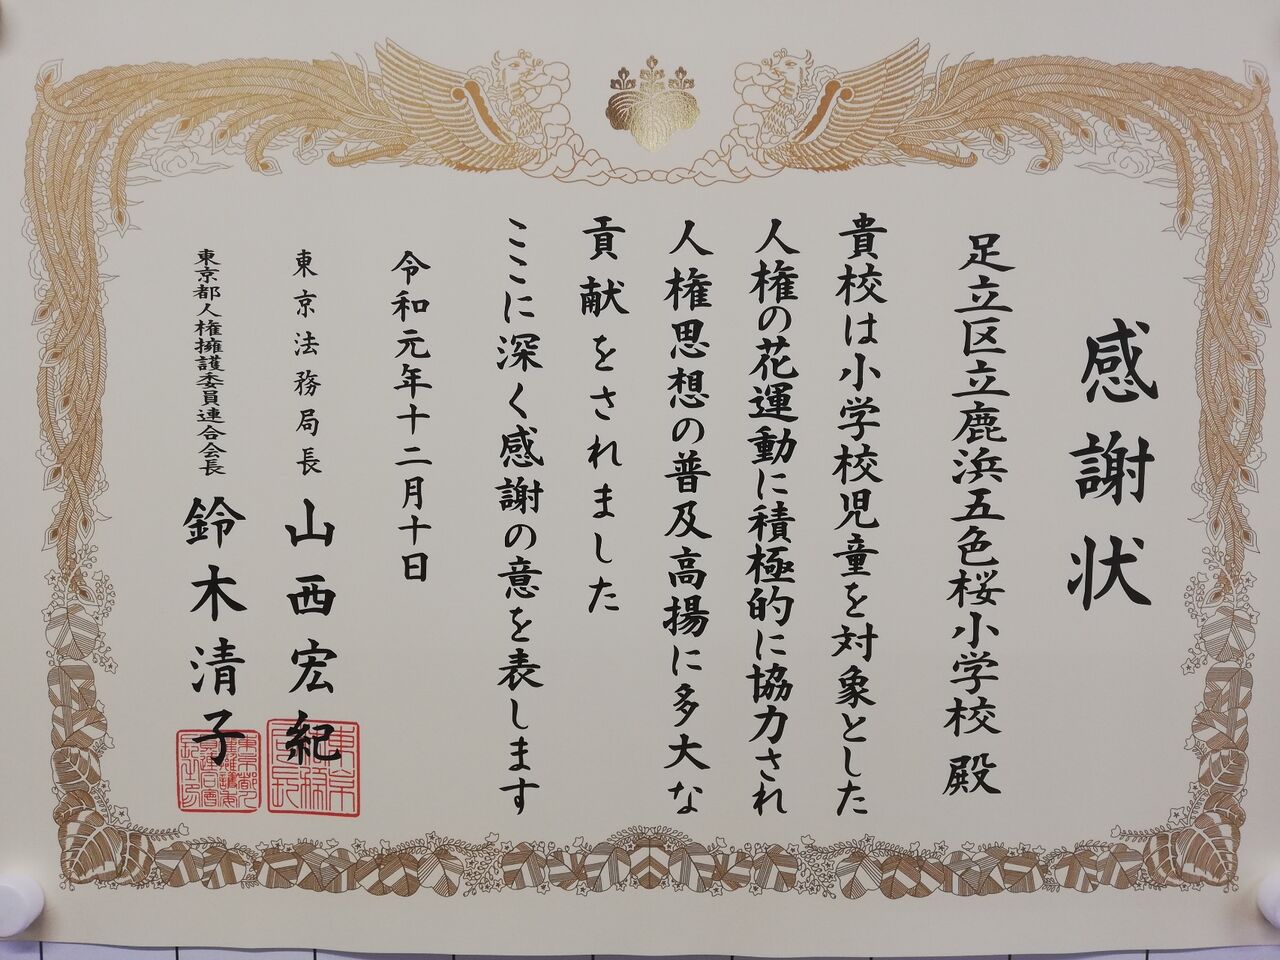 感謝状
足立区立鹿浜五色桜小学校 殿
貴校は小学校児童を対象とした
人権の花運動に積極的に協力され
人権思想の普及高揚に多大な
貢献をされました
ここに深く感謝の意を表します
令和元年十二月十日
東京法務局長 山西宏紀
東京都人権擁護委員連合会長 鈴木清子